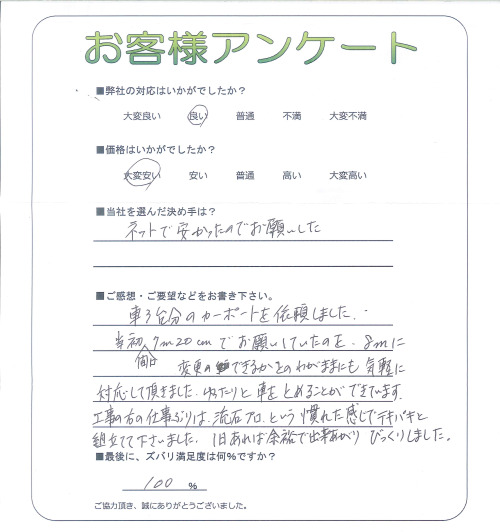 お客様アンケート
■弊社の対応はいかがでしたか？
大変良い 良い 普通 不満 大変不満
■価格はいかがでしたか？
大変安い 安い 普通 高い 大変高い
■当社を選んだ決め手は？
ネットで安かったのでお願いした
■ご感想・ご要望などをお書き下さい。
車3台分のカーポートを依頼しました。
当初、7m20cmでお願いしていたのを、8mに
間口
変更できるかとのわがままにも気軽に
対応して頂きました。ゆったりと車をとめることができています。
工事の方の仕事ぶりは、流石プロ、という慣れた感じでテキパキと
組立てて下さいました。1日あれば余裕で出来あがりびっくりしました。
■最後に、ズバリ満足度は何％ですか？
100 ％
ご協力頂き、誠にありがとうございました。